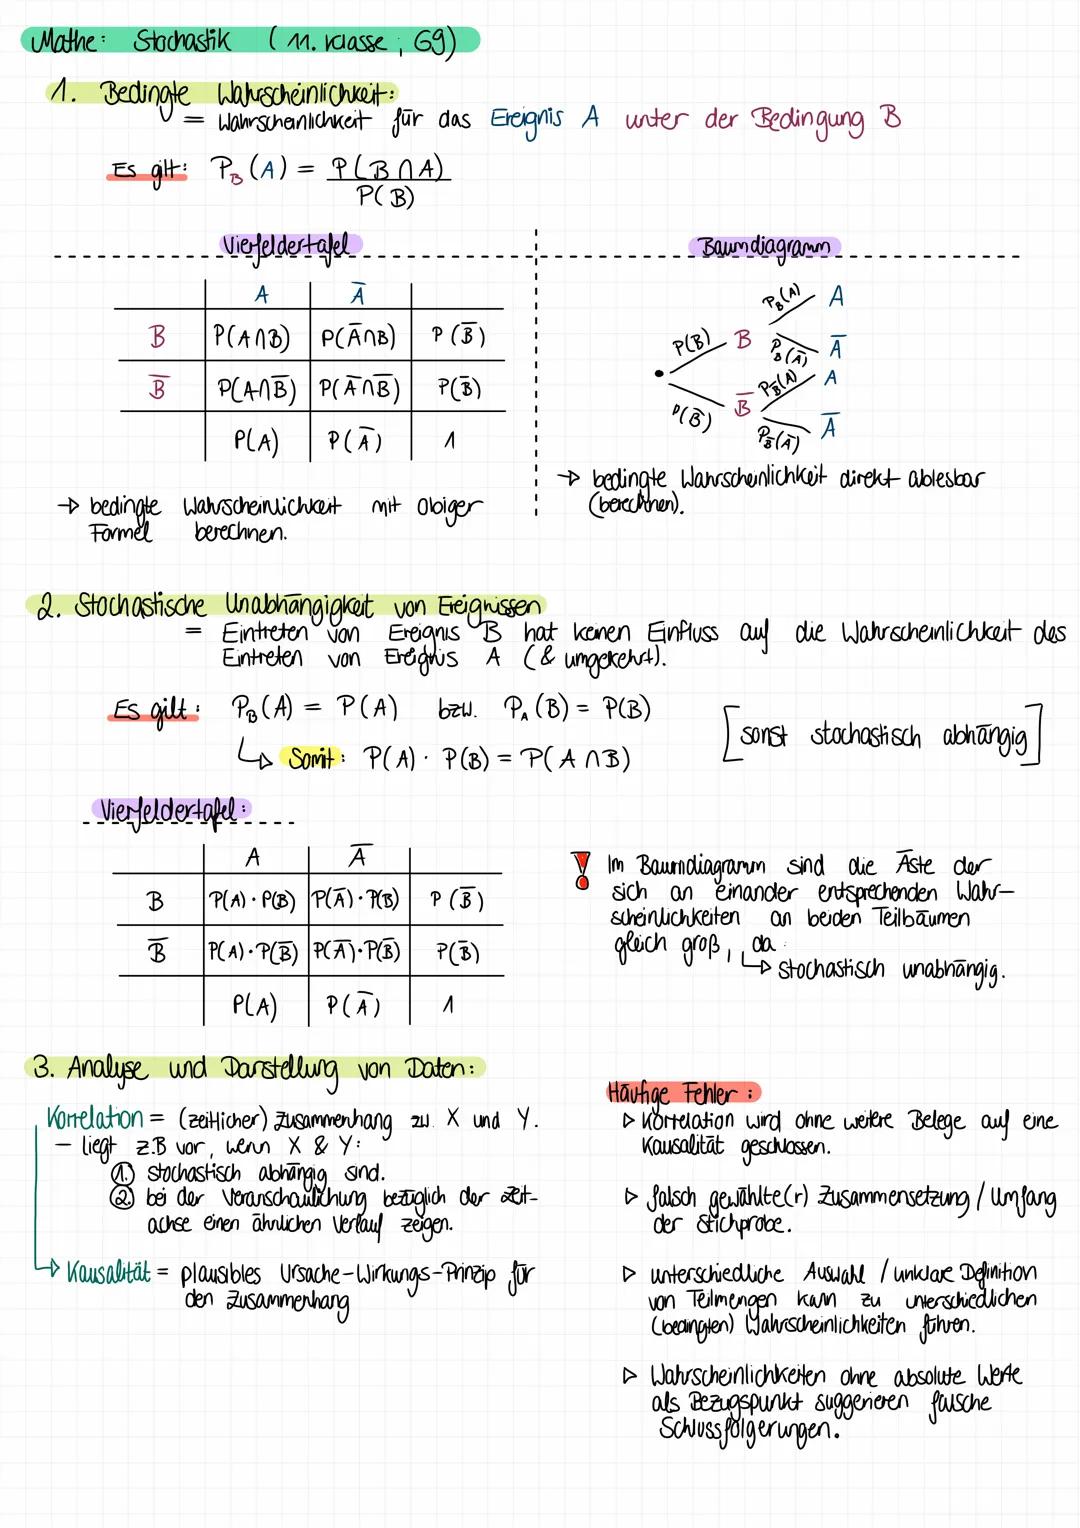 Mathe: Stochastik (11. Klasse; G9)
1. Bedingte Wahrscheinlichkeit:
= Wahrscheinlichkeit für das Ereignis A unter der Bedingung B
Es gilt: P_B(A) = P(B∩A)
P(B)
Vierfeldertafel
A A̅
B P(A∩B) P(A̅∩B) P(B̅)
B̅ P(A∩B̅) P(A̅∩B̅) P(B̅)
P(A) P(A̅) 1
→ bedingte Wahrscheinlichkeit mit obiger
Formel berechnen.
Baumdiagramm
P_B(A) A
P(B) B P_B(A̅) A̅
P_B̅(A) A
P(B̅) B̅ P_B̅(A̅) A̅
→ bedingte Wahrscheinlichkeit direkt ablesbar
(berechnen).
2. Stochastische Unabhängigkeit von Ereignissen
= Eintreten von Ereignis B hat keinen Einfluss auf die Wahrscheinlichkeit des
Eintreten von Ereignis A (& umgekehrt).
Es gilt: P_B(A) = P(A) bzw. P_A(B) = P(B)
[sonst stochastisch abhängig]
↳ Somit: P(A) · P(B) = P(A∩B)
Vierfeldertafel:
A A̅
B P(A)·P(B) P(A̅)·P(B) P(B̅)
B̅ P(A)·P(B̅) P(A̅)·P(B̅) P(B̅)
P(A) P(A̅) 1
! Im Baumdiagramm sind die Äste der
sich an einander entsprechenden Wahr-
scheinlichkeiten an beiden Teilbäumen
gleich groß, da:
↳ stochastisch unabhängig.
3. Analyse und Darstellung von Daten:
Korrelation = (zeitlicher) Zusammenhang zw. X und Y.
– liegt z.B vor, wenn X & Y:
1. stochastisch abhängig sind.
2. bei der Veranschaulichung bezüglich der Zeit-
achse einen ähnlichen Verlauf zeigen.
↳ Kausalität = plausibles Ursache-Wirkungs-Prinzip für
den Zusammenhang
Häufige Fehler:
▷ Korrelation wird ohne weitere Belege auf eine
Kausalität geschlossen.
▷ falsch gewählte(r) Zusammensetzung / Umfang
der Stichprobe.
▷ unterschiedliche Auswahl / unklare Definition
von Teilmengen kann zu unterschiedlichen
(bedingten) Wahrscheinlichkeiten führen.
▷ Wahrscheinlichkeiten ohne absolute Werte
als Bezugspunkt suggerieren falsche
Schlussfolgerungen.